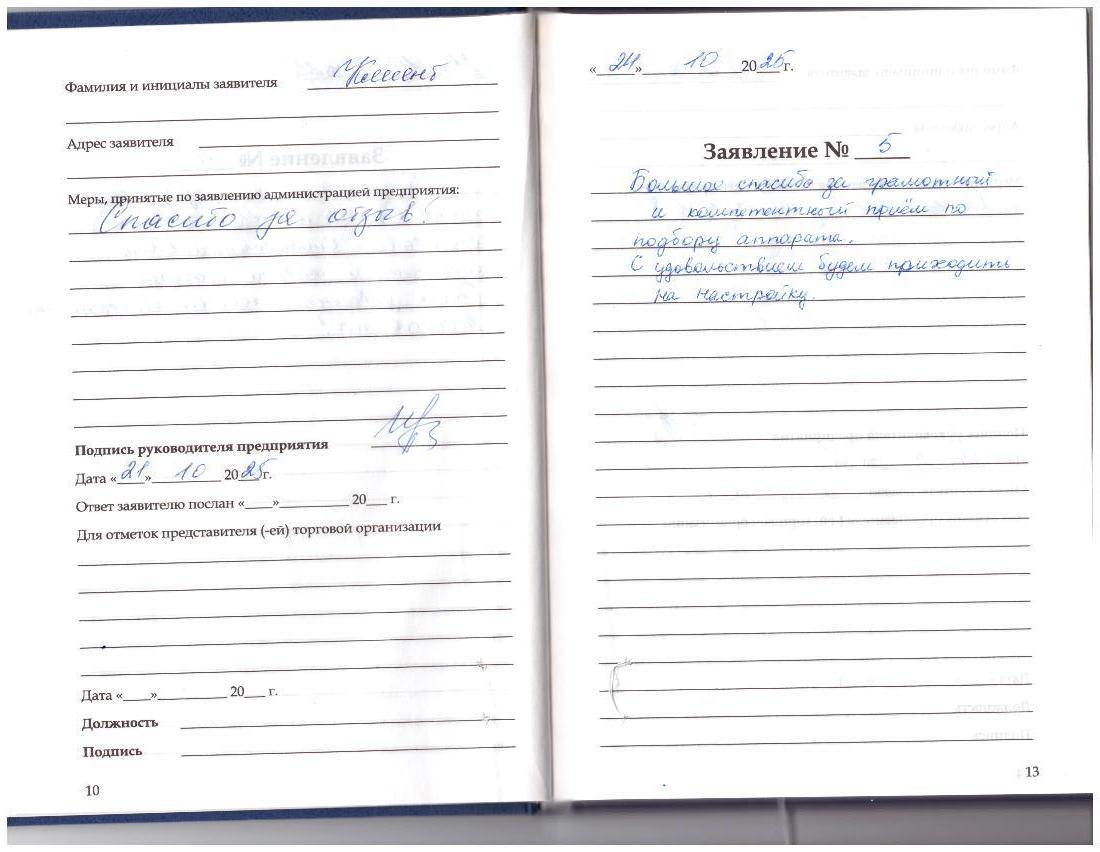 Фамилия и инициалы заявителя Клиент
Адрес заявителя
Меры, принятые по заявлению администрацией предприятия:
Спасибо за отзыв!
Подпись руководителя предприятия
Дата «21» 10 2025г.
Ответ заявителю послан «____»__________ 20___ г.
Для отметок представителя (-ей) торговой организации
Дата «____»__________ 20___ г.
Должность
Подпись
10
«24» 10 2025 г.
Заявление № 5
Большое спасибо за грамотный
и компетентный приём по
подбору аппарата.
С удовольствием будем приходить
на настройку.
13